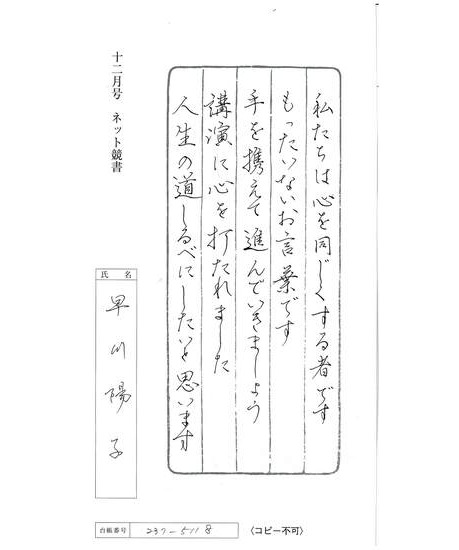 私たちは心を同じくする者です
もったいないお言葉です
手を携えて進んでいきましょう
講演に心を打たれました
人生の道しるべにしたいと思います
十二月号 ネット競書
氏名
早川陽子
台帳番号 237-5118
〈コピー不可〉